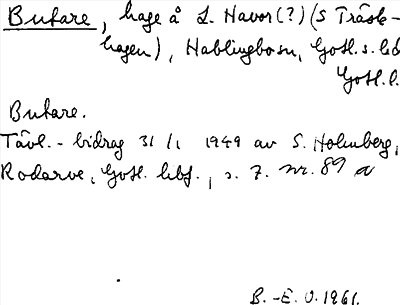 Butare, hage å L. Havor (?) (S Träsk-
hagen), Hablingbosn, Gotl. s. hd
Gotl. l.
Butare.
Tävl.-bidrag 31/1 1949 av S. Holmberg,
Rodarve, Gotl. lbf., s. 7. nr. 89 a
B.-E. O. 1961.